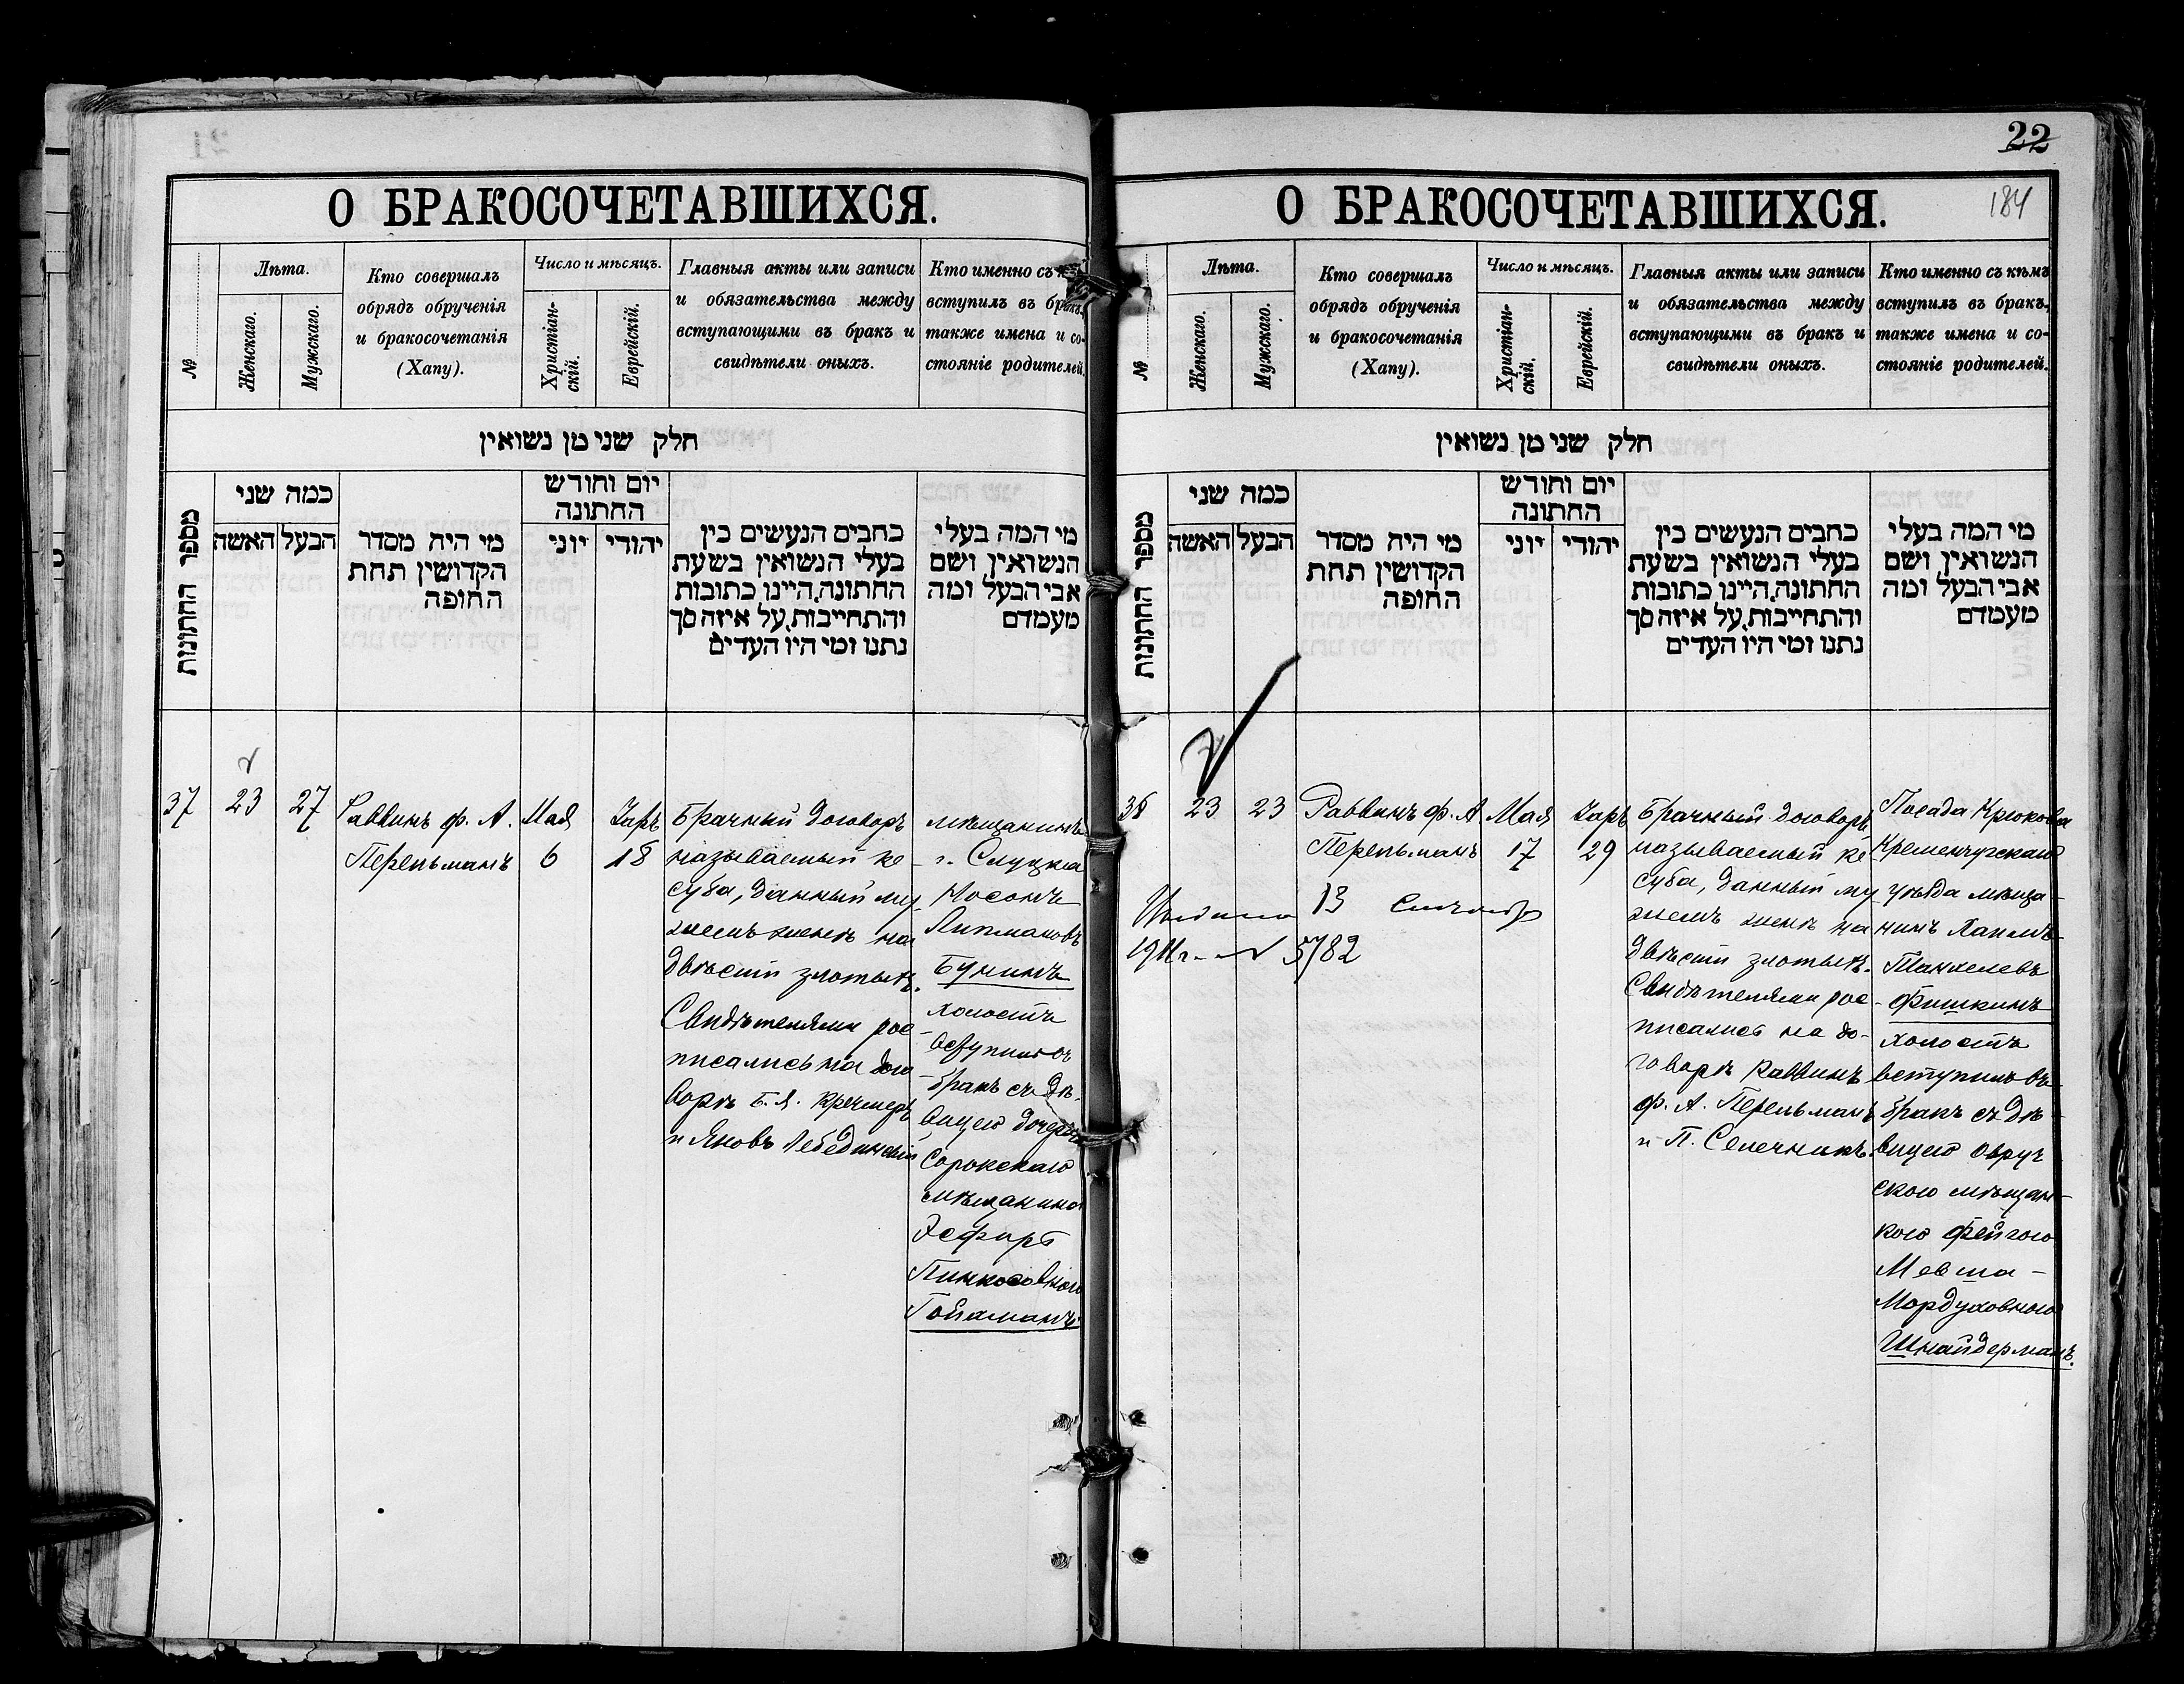 22
184
О БРАКОСОЧЕТАВШИХСЯ.
№
Лѣта.
Женскаго.
Мужскаго.
Кто совершалъ
обрядъ обрученія
и бракосочетанія
(Хапу).
Число и мѣсяцъ.
Христіан-
скій.
Еврейскій.
Главныя акты или записи
и обязательства между
вступающими въ бракъ и
свидѣтели оныхъ.
Кто именно съ
вступилъ въ бракъ,
также имена и со-
стояніе родителей.
חלק שני מן נשואין
מספר החתונות
כמה שני
האשה
הבעל
מי היה מסדר
הקדושין תחת
החופה
יום וחודש
החתונה
יוני
יהודי
כתבים הנעשים בין
בעלי הנשואין בשעת
החתונה, היינו כתובות
והתחייבות, על איזה סך
נתנו ומי היו העדים
מי המה בעלי
הנשואין ושם
אבי הבעל ומה
מעמדם
37
23
27
Раввинъ ф. А.
Перельманъ
Мая
6
Іаръ
18
Брачный договоръ
называемый ке
суба, данный му
жемъ женѣ на
двѣсти злотыхъ.
Свидѣтелями рос
писались на дого
ворѣ Б. Я. Кречмеръ
и Яковъ Лебединскій
мѣщанинъ
г. Слуцка
Носонъ
Липмановъ
Бунинъ
холостъ
вступилъ въ
бракъ съ дѣ-
вицею дочерью
Сорокскаго
мѣщанина
Эсфирь
Пинкосовною
Гойхманъ
О БРАКОСОЧЕТАВШИХСЯ.
№
Лѣта.
Женскаго.
Мужскаго.
Кто совершалъ
обрядъ обрученія
и бракосочетанія
(Хапу).
Число и мѣсяцъ.
Христіан-
скій.
Еврейскій.
Главныя акты или записи
и обязательства между
вступающими въ бракъ и
свидѣтели оныхъ.
Кто именно съ кѣмъ
вступилъ въ бракъ,
также имена и со-
стояніе родителей.
חלק שני מן נשואין
מספר החתונות
כמה שני
האשה
הבעל
מי היה מסדר
הקדושין תחת
החופה
יום וחודש
החתונה
יוני
יהודי
כתבים הנעשים בין
בעלי הנשואין בשעת
החתונה, היינו כתובות
והתחייבות, על איזה סך
נתנו ומי היו העדים
מי המה בעלי
הנשואין ושם
אבי הבעל ומה
מעמדם
38
23
23
Раввинъ ф. А
Перельманъ
Мая
17
Іаръ
29
13
5782
Брачный договоръ
называемый ке
суба, данный му
жемъ женѣ на
двѣсти злотыхъ.
Свидѣтелями рос-
писались на до-
говорѣ Раввинъ
ф. А. Перельманъ
и П. Селечникъ.
Посада Крюкова
Кременчугскаго
уѣзда мѣща-
нинъ
Танхелевъ
Фишкинъ
холостъ
вступилъ въ
бракъ съ дѣ-
вицею Овруч
скою мѣщан-
кою Фейгою
Мордуховною
Шнайдерманъ.